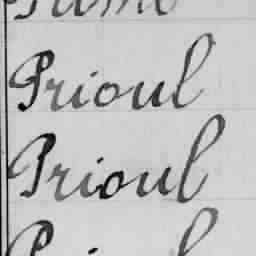 Prioul
Prioul